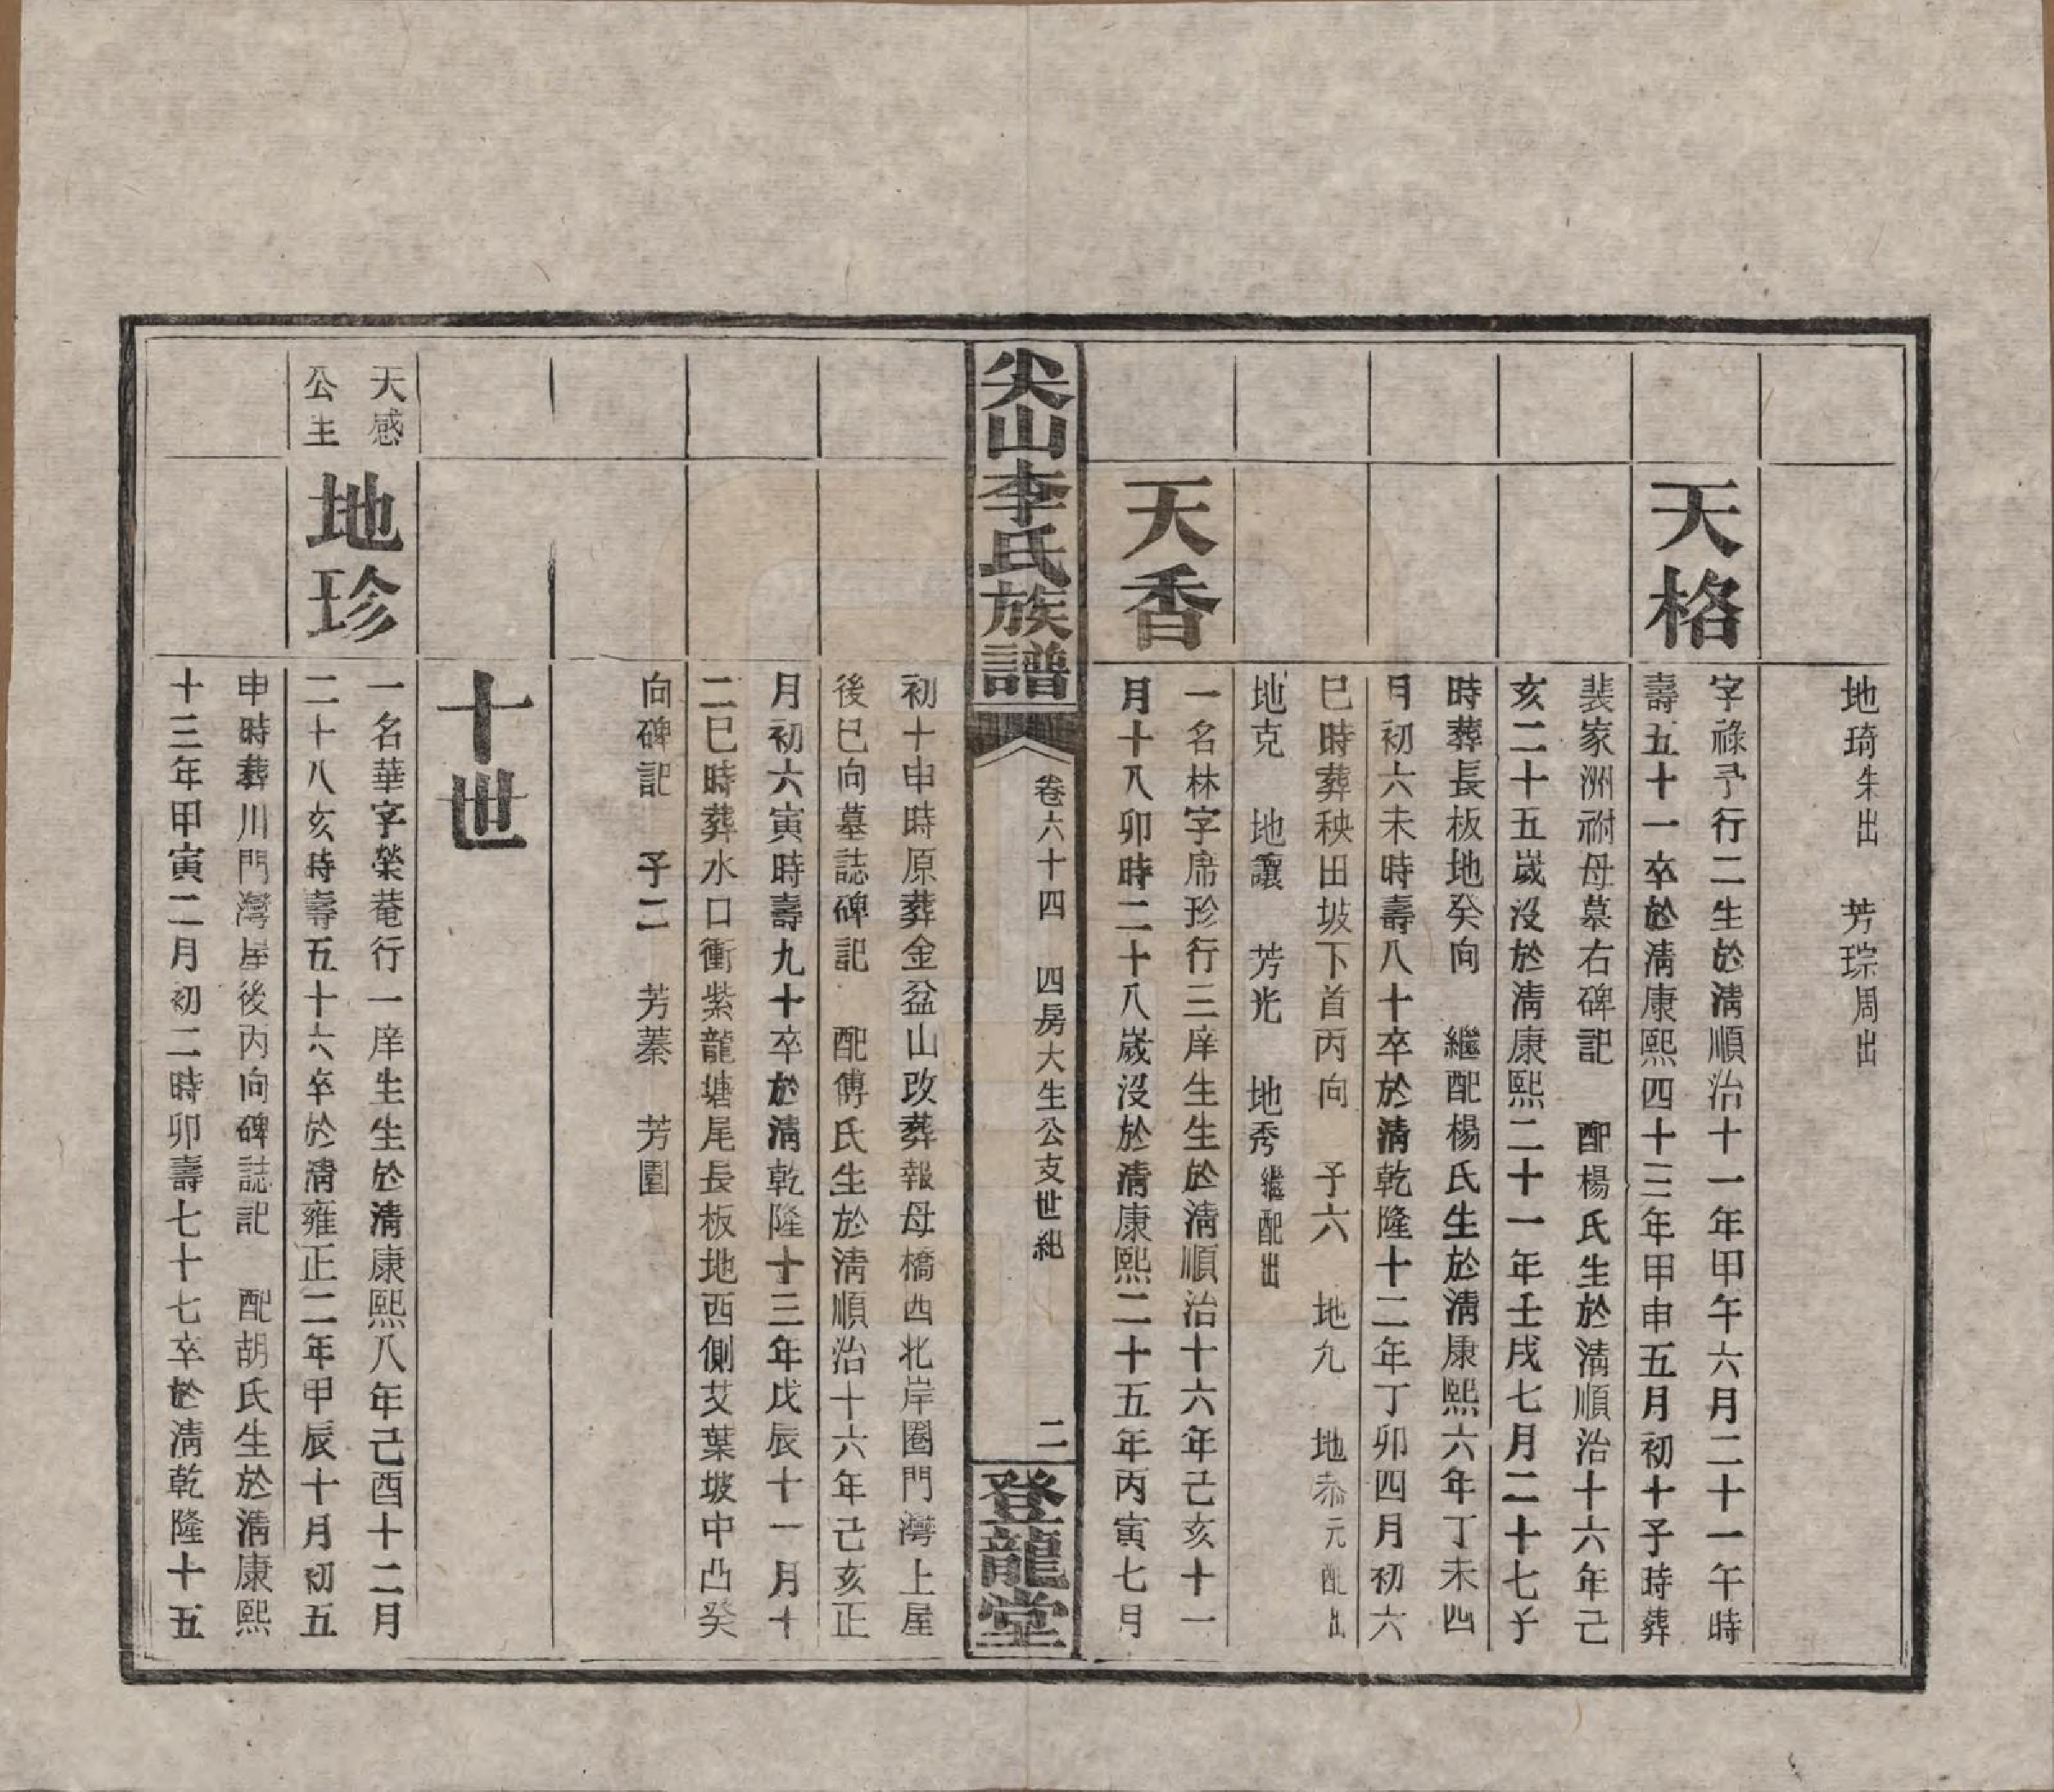 地琦朱出　芳琮周出
天格
字祿予行二生於淸順治十一年甲午六月二十一午時
壽五十一卒於淸康熙四十三年甲申五月初十子時葬
裴家洲祔母墓右碑記　配楊氏生於淸順治十六年己
亥二十五歲沒於淸康熙二十一年壬戌七月二十七子
時葬長板地癸向　繼配楊氏生於淸康熙六年丁未四
月初六未時壽八十卒於淸乾隆十二年丁卯四月初六
巳時葬秧田坡下首丙向　子六　地九　地泰元配出
地克　地讓　芳光　地秀繼配出
天香
一名林字席珍行三庠生生於淸順治十六年己亥十一
月十八卯時二十八歲沒於淸康熙二十五年丙寅七月
尖山李氏族譜
卷六十四　四房大生公支世紀
二
登龍堂
初十申時原葬金盆山改葬報母橋西北岸圈門灣上屋
後巳向墓誌碑記　配傅氏生於淸順治十六年己亥正
月初六寅時壽九十卒於淸乾隆十三年戊辰十一月十
二巳時葬水口衝紫龍塘尾長板地西側艾葉坡中凸癸
向碑記　子二　芳蓁　芳園
十世
天感
公主
地珍
一名華字榮菴行一庠生生於淸康熙八年己酉十二月
二十八亥時壽五十六卒於淸雍正二年甲辰十月初五
申時葬川門灣屋後丙向碑誌記　配胡氏生於淸康熙
十三年甲寅二月初二時卯壽七十七卒於淸乾隆十五